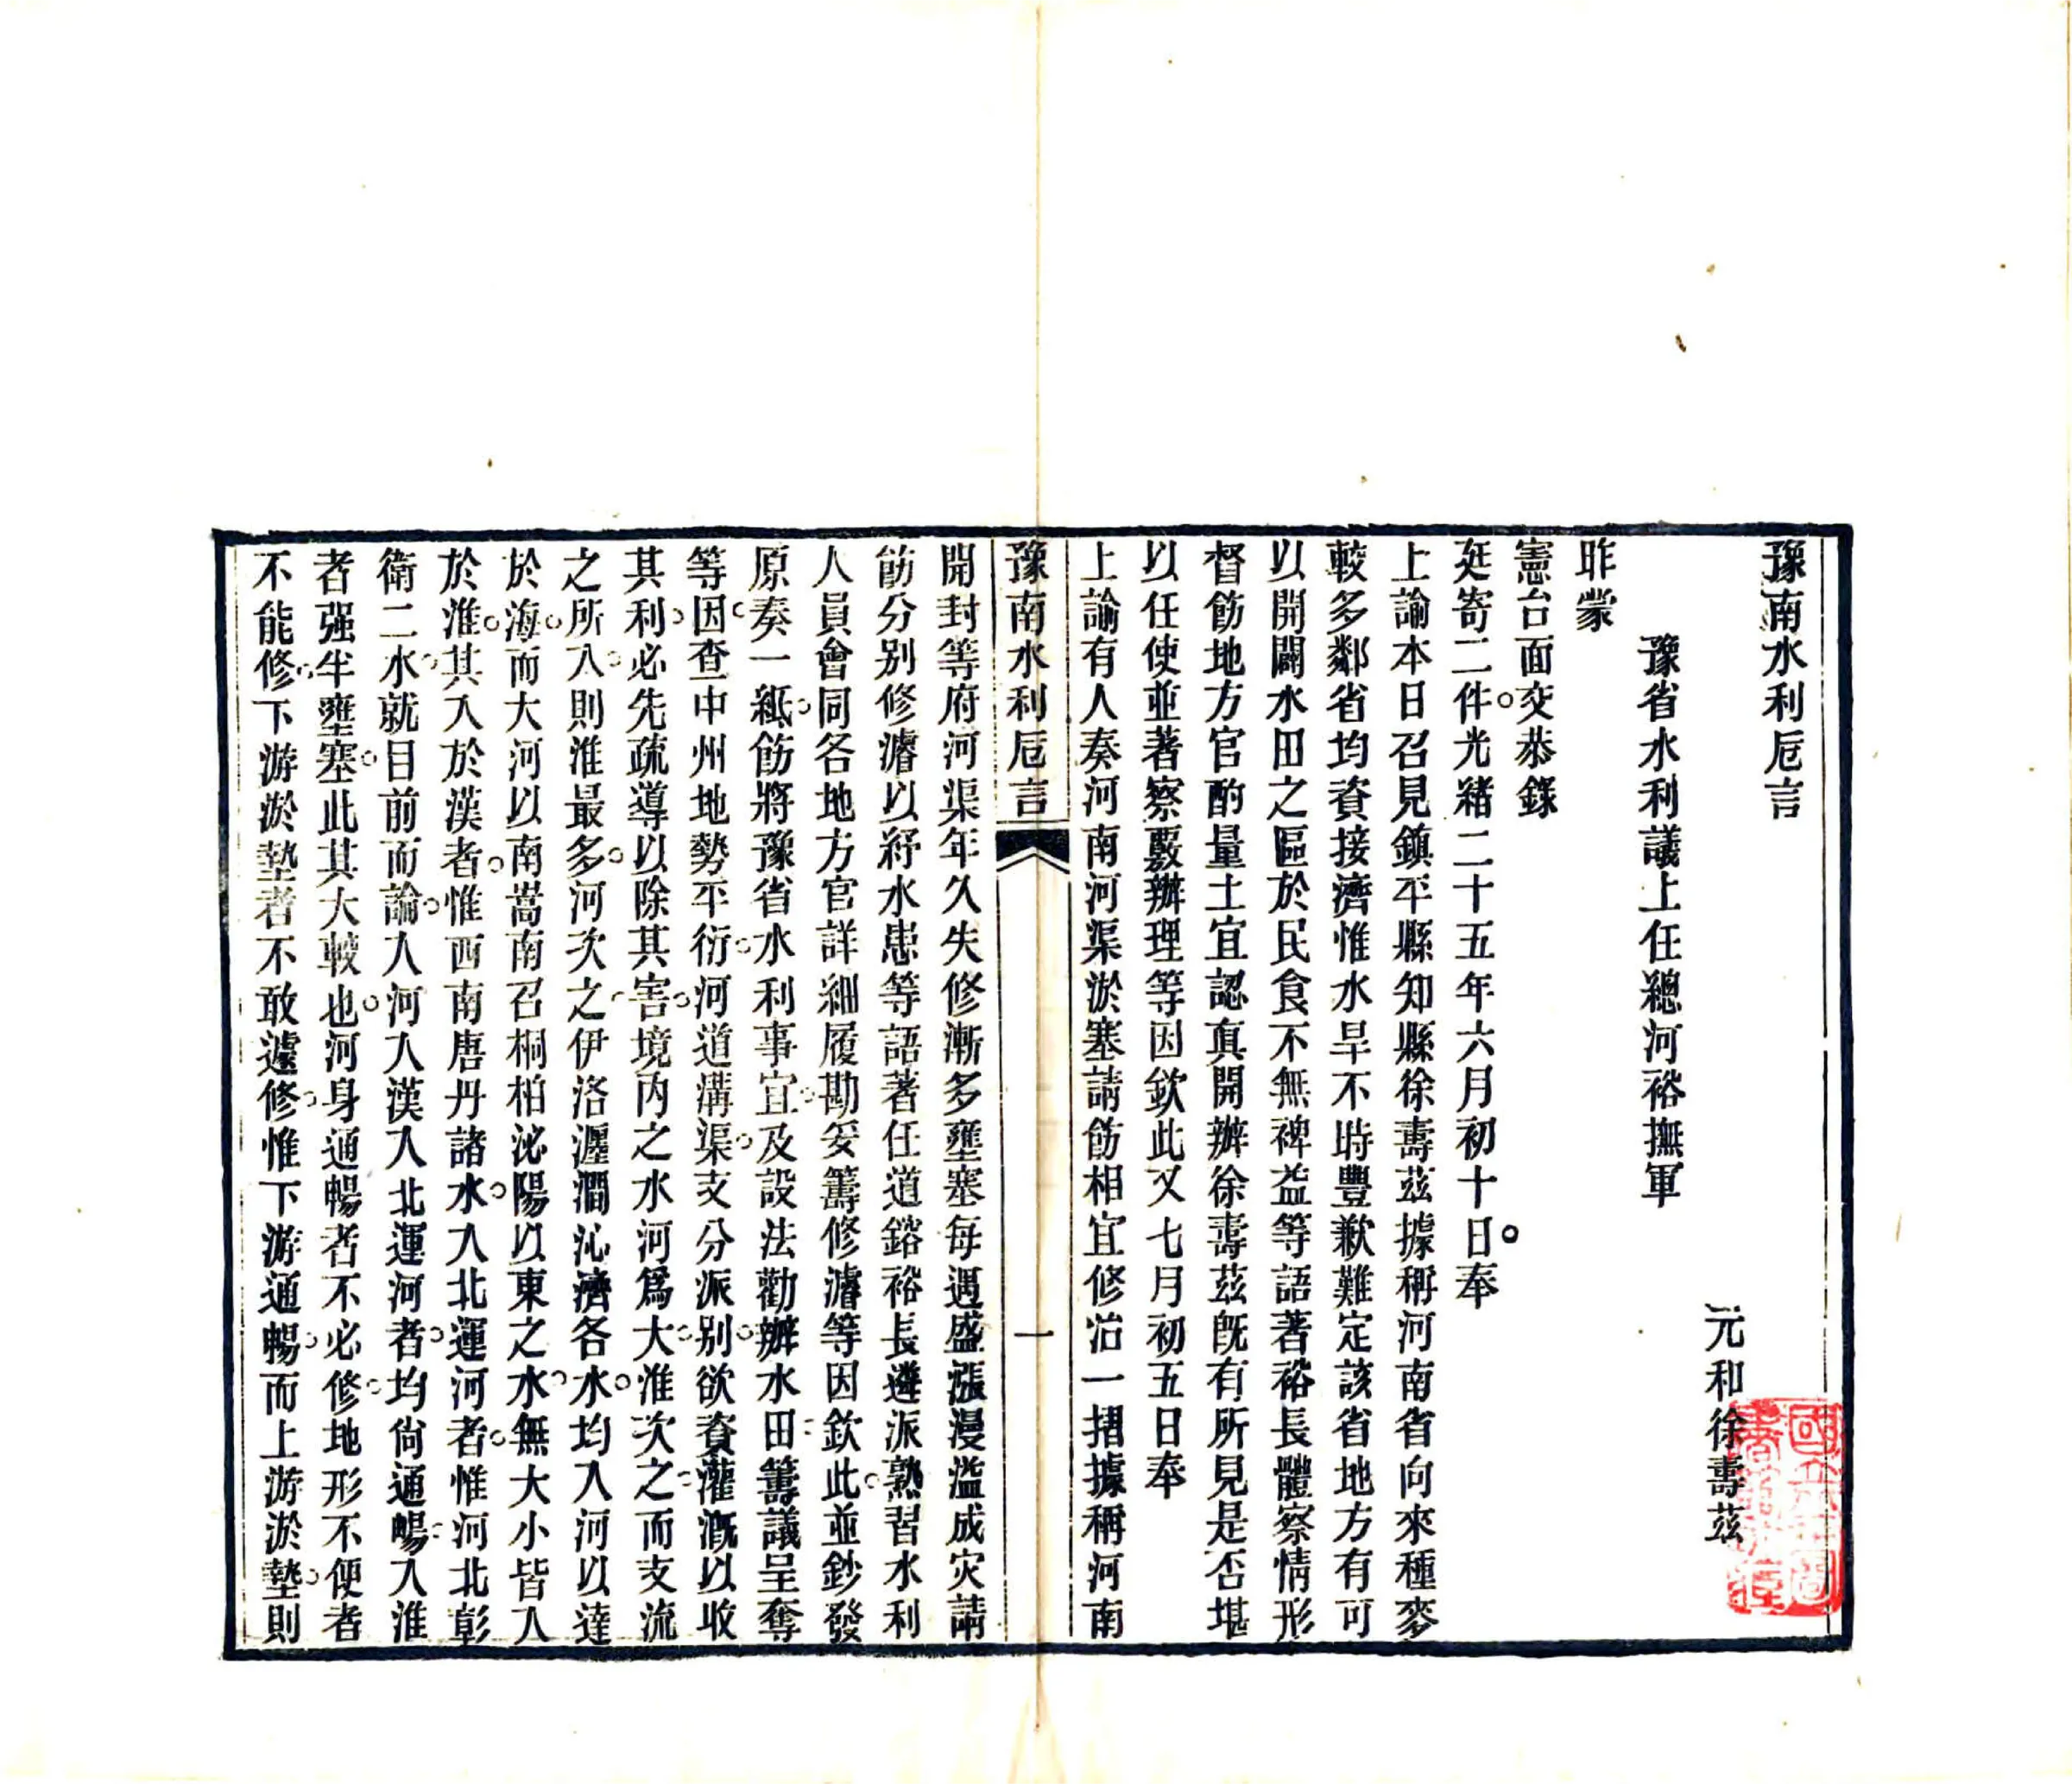 豫南水利卮言
元和徐壽茲
豫省水利議上任總河裕撫軍
昨蒙
憲台面交恭錄
廷寄二件光緒二十五年六月初十日奉
上諭本日召見鎮平縣知縣徐壽茲據稱河南省向來種麥
較多鄰省均資接濟惟水旱不時豐歉難定該省地方有可
以開闢水田之區於民食不無裨益等語著裕長體察情形
督飭地方官酌量土宜認真開辦徐壽茲旣有所見是否堪
以任使並著察覈辦理等因欽此又七月初五日奉
上諭有人奏河南河渠淤塞請飭相宜修治一摺據稱河南
豫南水利卮言
一
開封等府河渠年久失修漸多壅塞每遇盛漲漫溢成灾請
飭分別修濬以紓水患等語著任道鎔裕長遴派熟習水利
人員會同各地方官詳細履勘妥籌修濬等因欽此並鈔發
原奏一紙飭將豫省水利事宜及設法勸辦水田籌議呈奪
等因查中州地勢平衍河道溝渠支分派別欲資灌溉以收
其利必先疏導以除其害境內之水河爲大淮次之而支流
之所入則淮最多河次之伊洛瀍澗沁濟各水均入河以達
於海而大河以南嵩南召桐柏泌陽以東之水無大小皆入
於淮其入於漢者惟西南唐丹諸水入北運河者惟河北彰
衛二水就目前而論入河入漢入北運河者均尙通暢入淮
者强半壅塞此其大較也河身通暢者不必修地形不便者
不能修下游淤墊者不敢遽修惟下游通暢而上游淤墊則